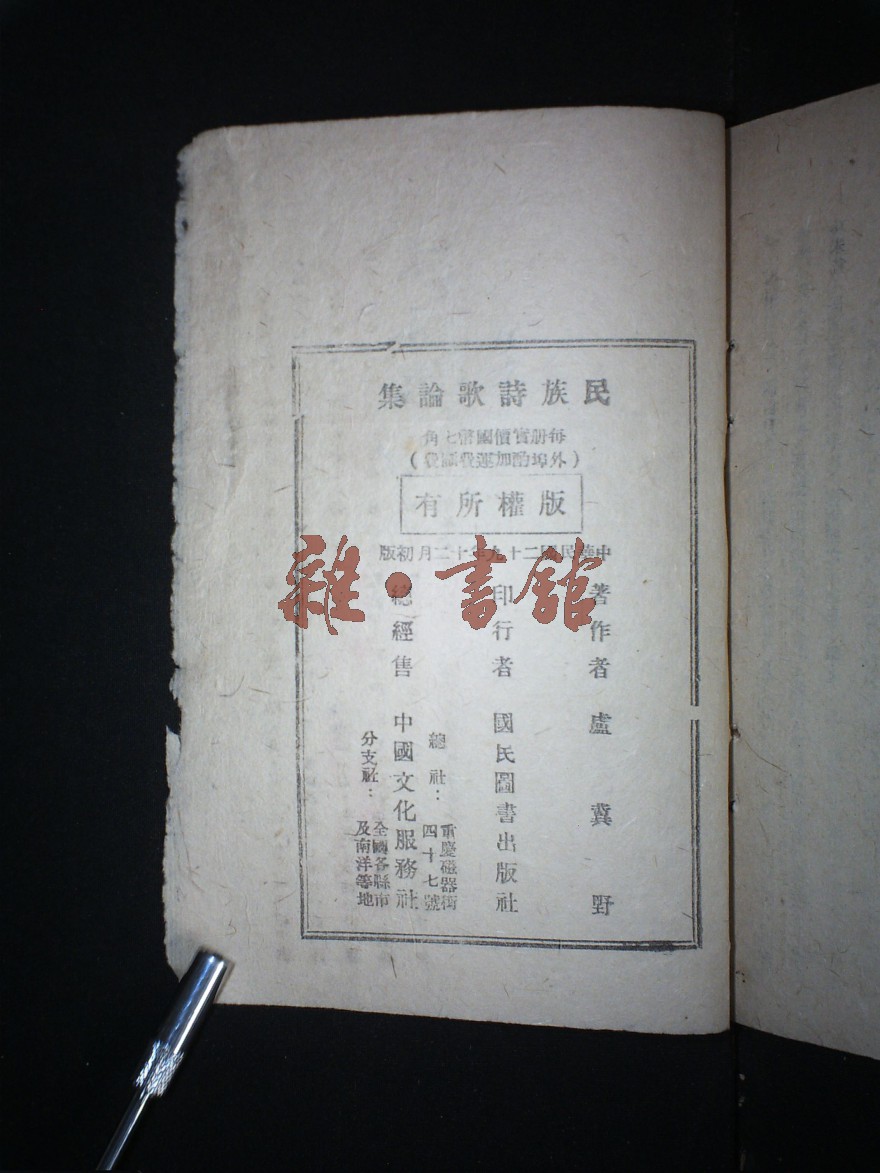 民族詩歌論集
每册實價國幣七角
(外埠酌加運費匯費)
版權所有
中華民國二十九年十二月初版
著作者 盧冀野
印行者 國民圖書出版社
總經售 中國文化服務社
總社：重慶磁器街四十七號
分支社：全國各縣市及南洋等地
雜·書館